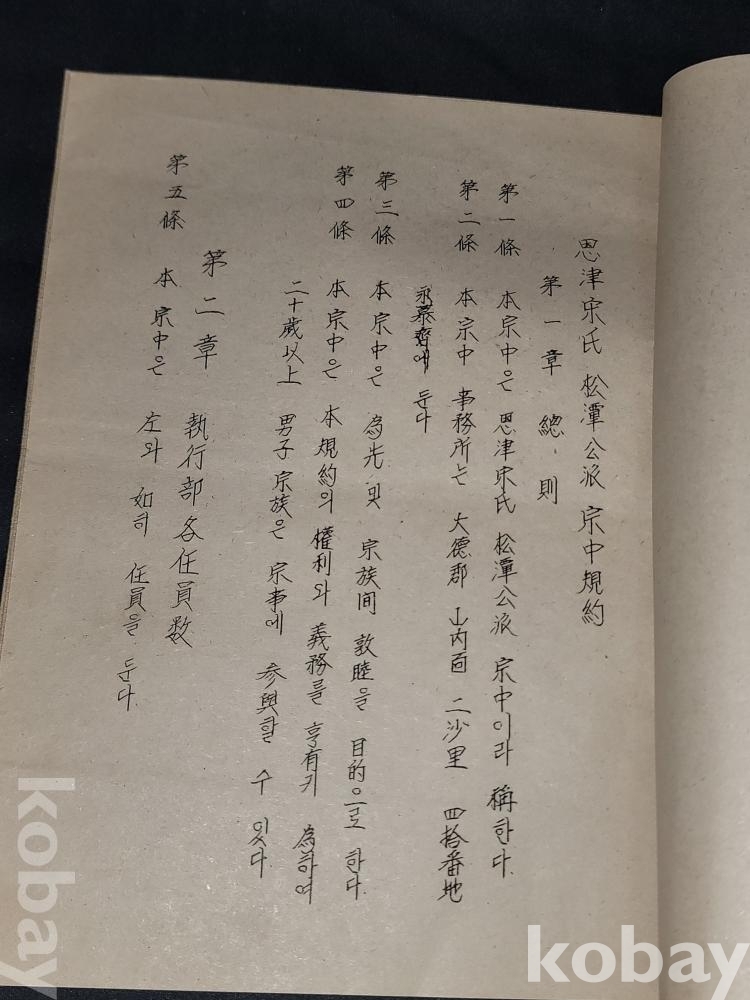 恩津宋氏 松潭公派 宗中規約
第一章 總則
第一條 本宗中은 恩津宋氏 松潭公派 宗中이라 稱한다.
第二條 本宗中 事務所는 大德郡 山内面 二沙里 四拾番地
永慕齋에 둔다
第三條 本宗中은 為先 및 宗族间 敦睦을 目的으로 한다.
第四條 本宗中은 本規約의 權利와 義務를 享有키 為하여
二十歲以上 男子宗族은 宗事에 參與할 수 있다.
第二章 執行部各任員数
第五條 本宗中은 左와 如히 任員을 둔다.
kobay
kobay